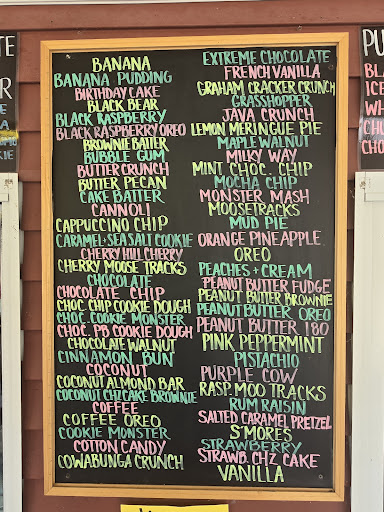 BANANA
BANANA PUDDING
BIRTHDAY CAKE
BLACK BEAR
BLACK RASPBERRY
BLACK RASPBERRY OREO
BROWNIE BATTER
BUBBLE GUM
BUTTER CRUNCH
BUTTER PECAN
CAKE BATTER
CANNOLI
CAPPUCCINO CHIP
CARAMEL + SEA SALT COOKIE
CHERRY HILL CHERRY
CHERRY MOOSE TRACKS
CHOCOLATE
CHOCOLATE CHIP
CHOC. CHIP COOKIE DOUGH
CHOC. COOKIE MONSTER
CHOC. PB COOKIE DOUGH
CHOCOLATE WALNUT
CINNAMON BUN
COCONUT
COCONUT ALMOND BAR
COCONUT CHZCAKE BROWNIE
COFFEE
COFFEE OREO
COOKIE MONSTER
COTTON CANDY
COWABUNGA CRUNCH
EXTREME CHOCOLATE
FRENCH VANILLA
GRAHAM CRACKER CRUNCH
GRASSHOPPER
JAVA CRUNCH
LEMON MERINGUE PIE
MAPLE WALNUT
MILKY WAY
MINT CHOC. CHIP
MOCHA CHIP
MONSTER MASH
MOOSETRACKS
MUD PIE
ORANGE PINEAPPLE
OREO
PEACHES + CREAM
PEANUT BUTTER FUDGE
PEANUT BUTTER BROWNIE
PEANUT BUTTER OREO
PEANUT BUTTER 180
PINK PEPPERMINT
PISTACHIO
PURPLE COW
RASP. MOO TRACKS
RUM RAISIN
SALTED CARAMEL PRETZEL
S'MORES
STRAWBERRY
STRAWB. CHZ CAKE
VANILLA